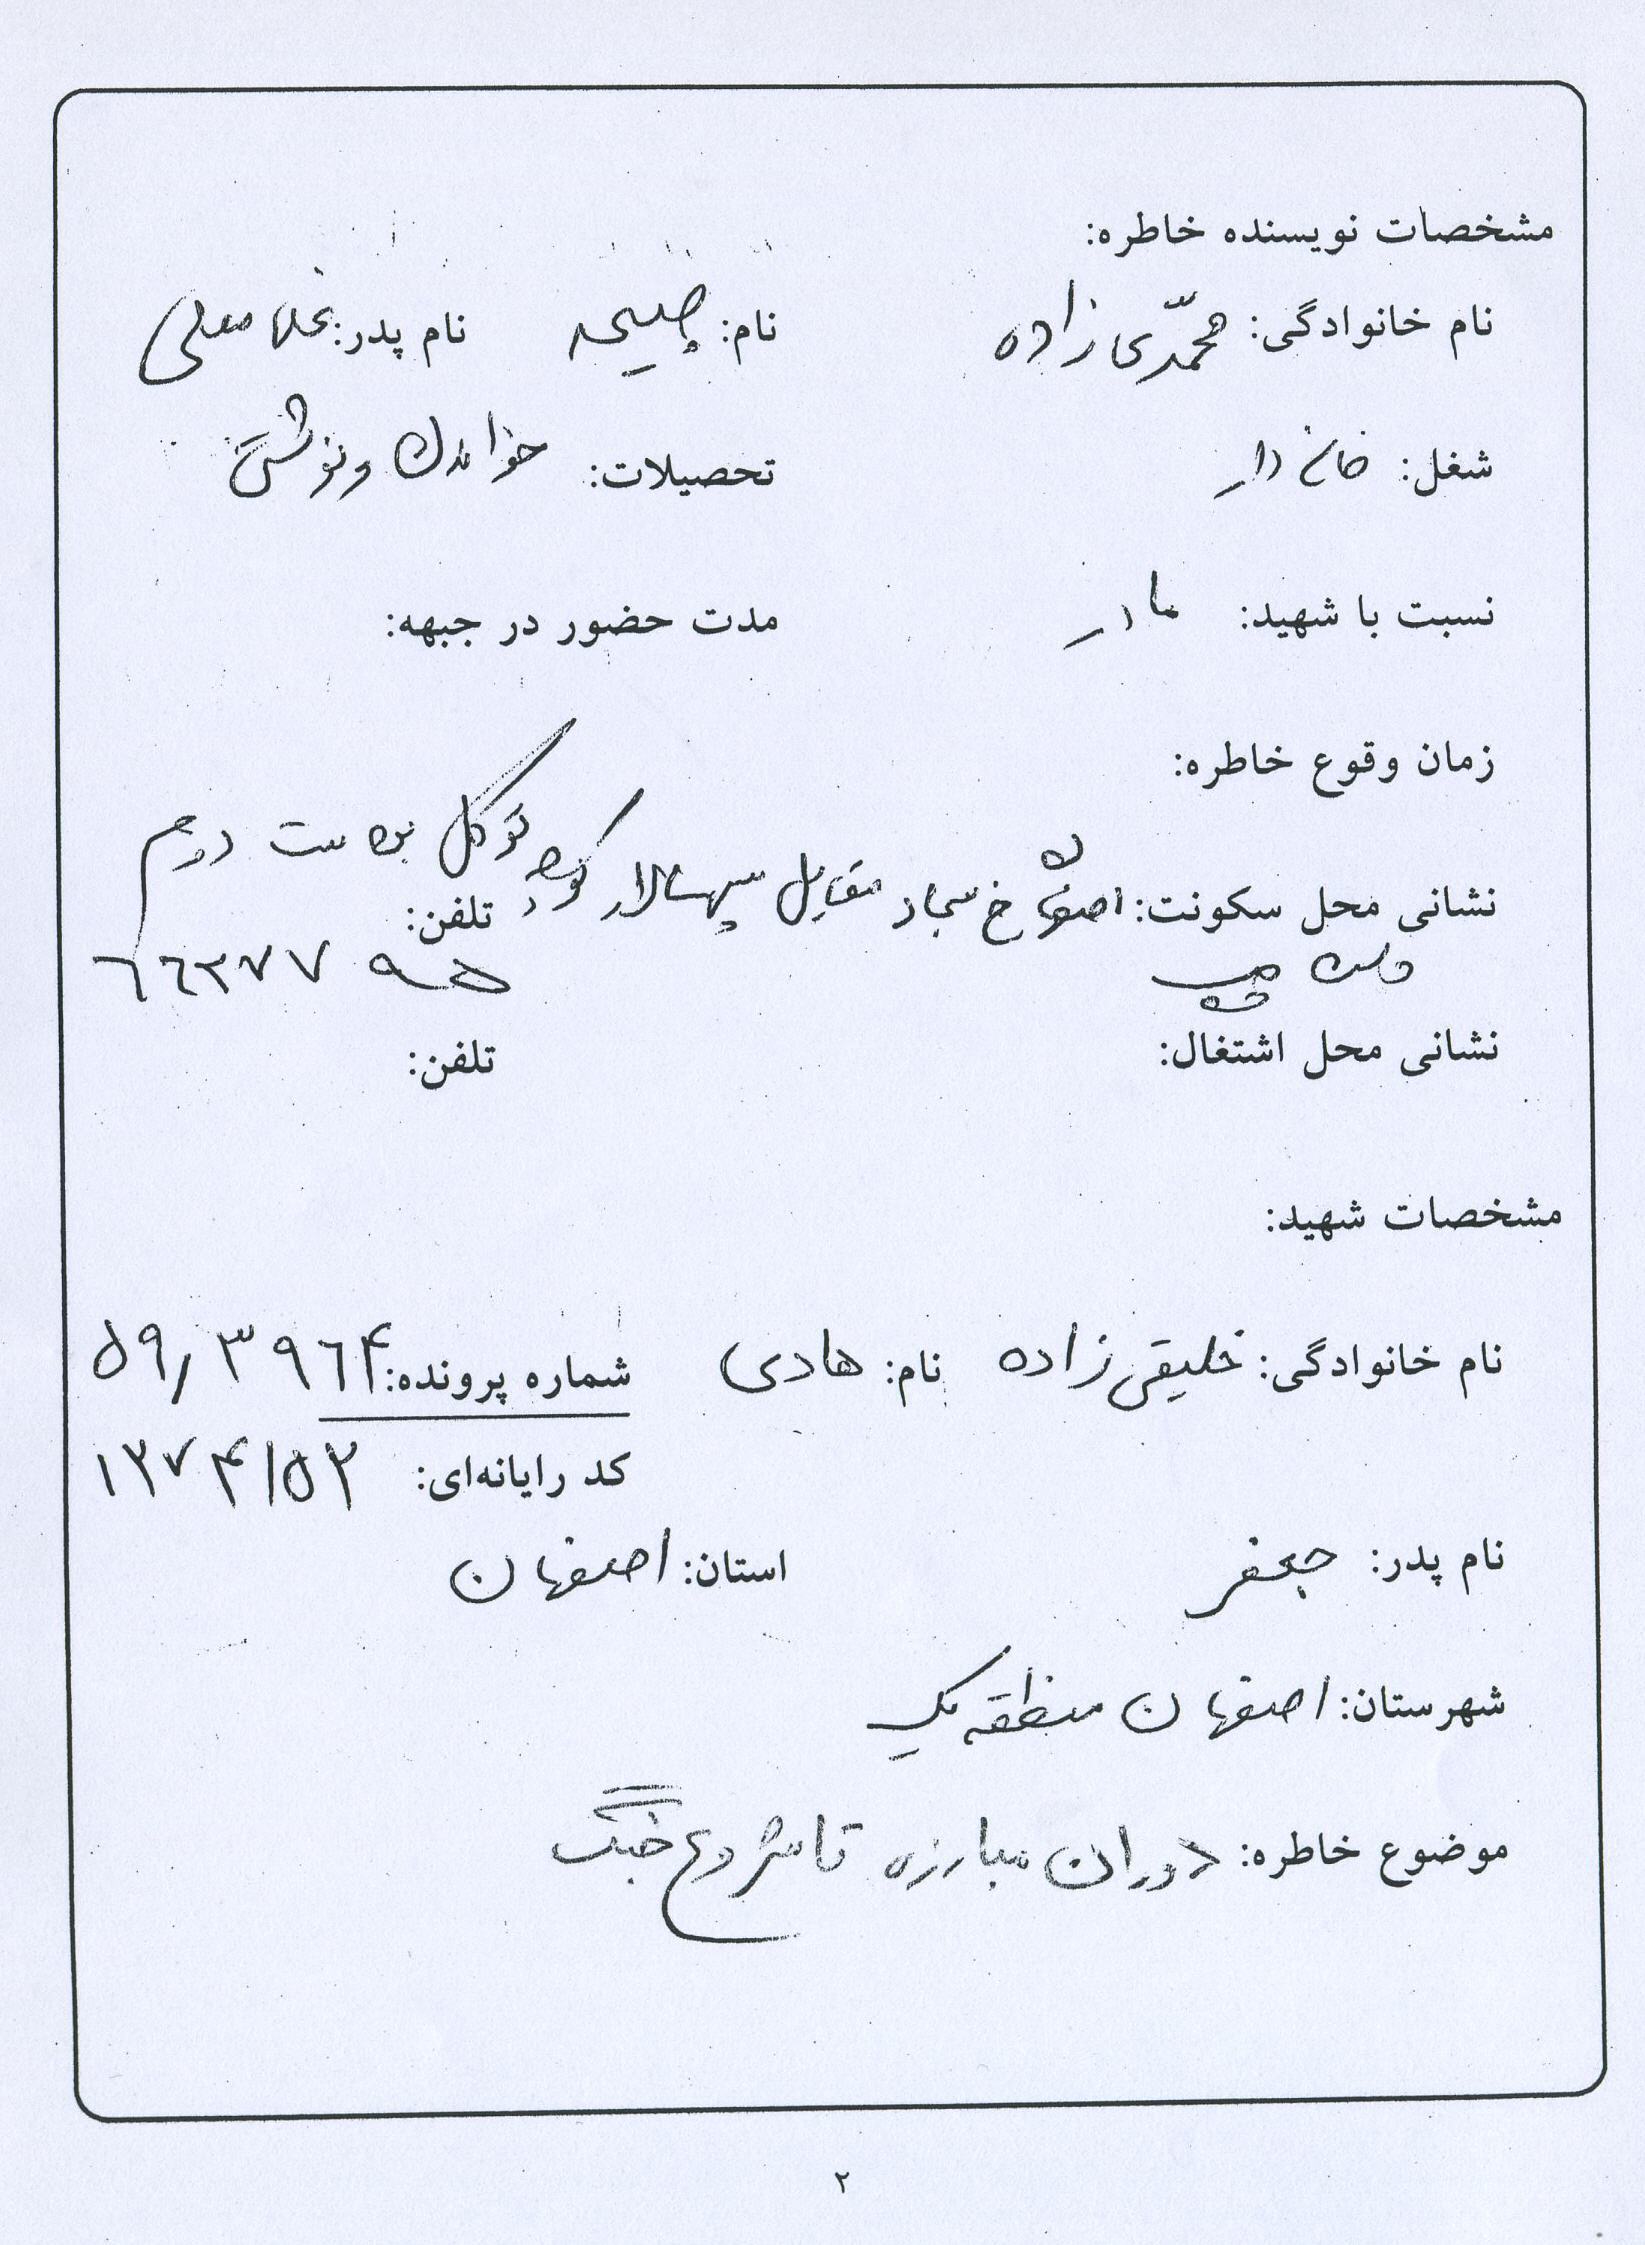 مشخصات نویسنده خاطره:
نام خانوادگی: محمّدی زاده نام: صبیحه نام پدر:
شغل: خانه دار تحصیلات: خواندن و نوشتن
نسبت با شهید: مادر مدت حضور در جبهه:
زمان وقوع خاطره:
نشانی محل سکونت: اصفهان خ سجاد مقابل سپهسالار کوچه توکل بن بست دوم
دست چپ تلفن: ٦٦٢٧٧
نشانی محل اشتغال: تلفن:
مشخصات شهید:
نام خانوادگی: خلیقی زاده نام: هادی شماره پرونده: ۵۹٫۳۹٦۴
کد رایانه‌ای: ۱۲۷۴/۵۲
نام پدر: جعفر استان: اصفهان
شهرستان: اصفهان منطقه یک
موضوع خاطره: دوران مبارزه تا شروع جنگ
۲